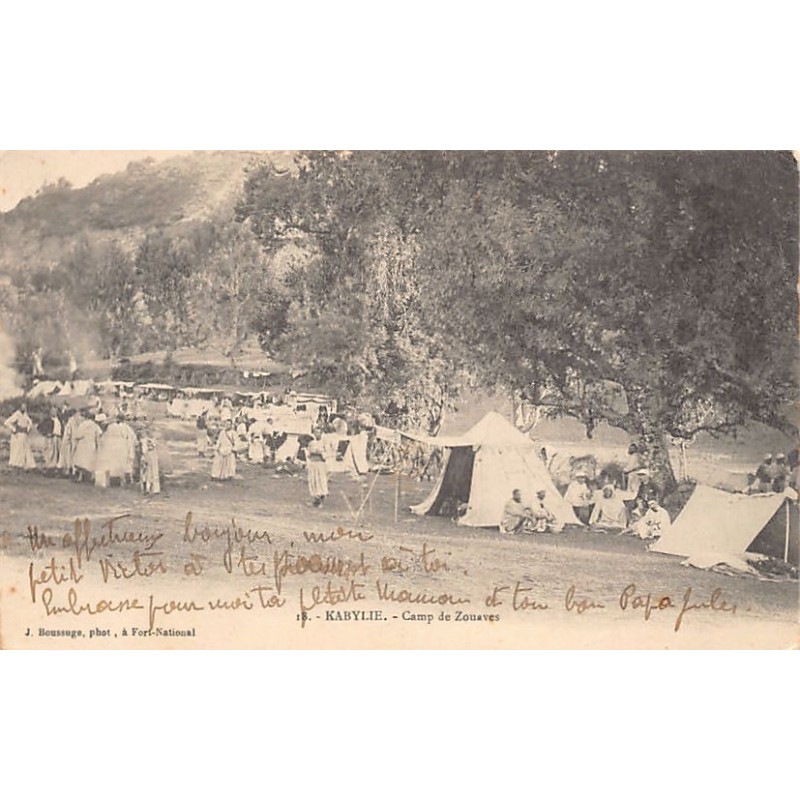 Un affectueux bonjour, mon
petit Victor à tes parents et à toi.
Embrasse pour moi ta petite Maman et ton bon Papa Jules.
18. - KABYLIE. - Camp de Zouaves
J. Boussuge, phot, à Fort-National